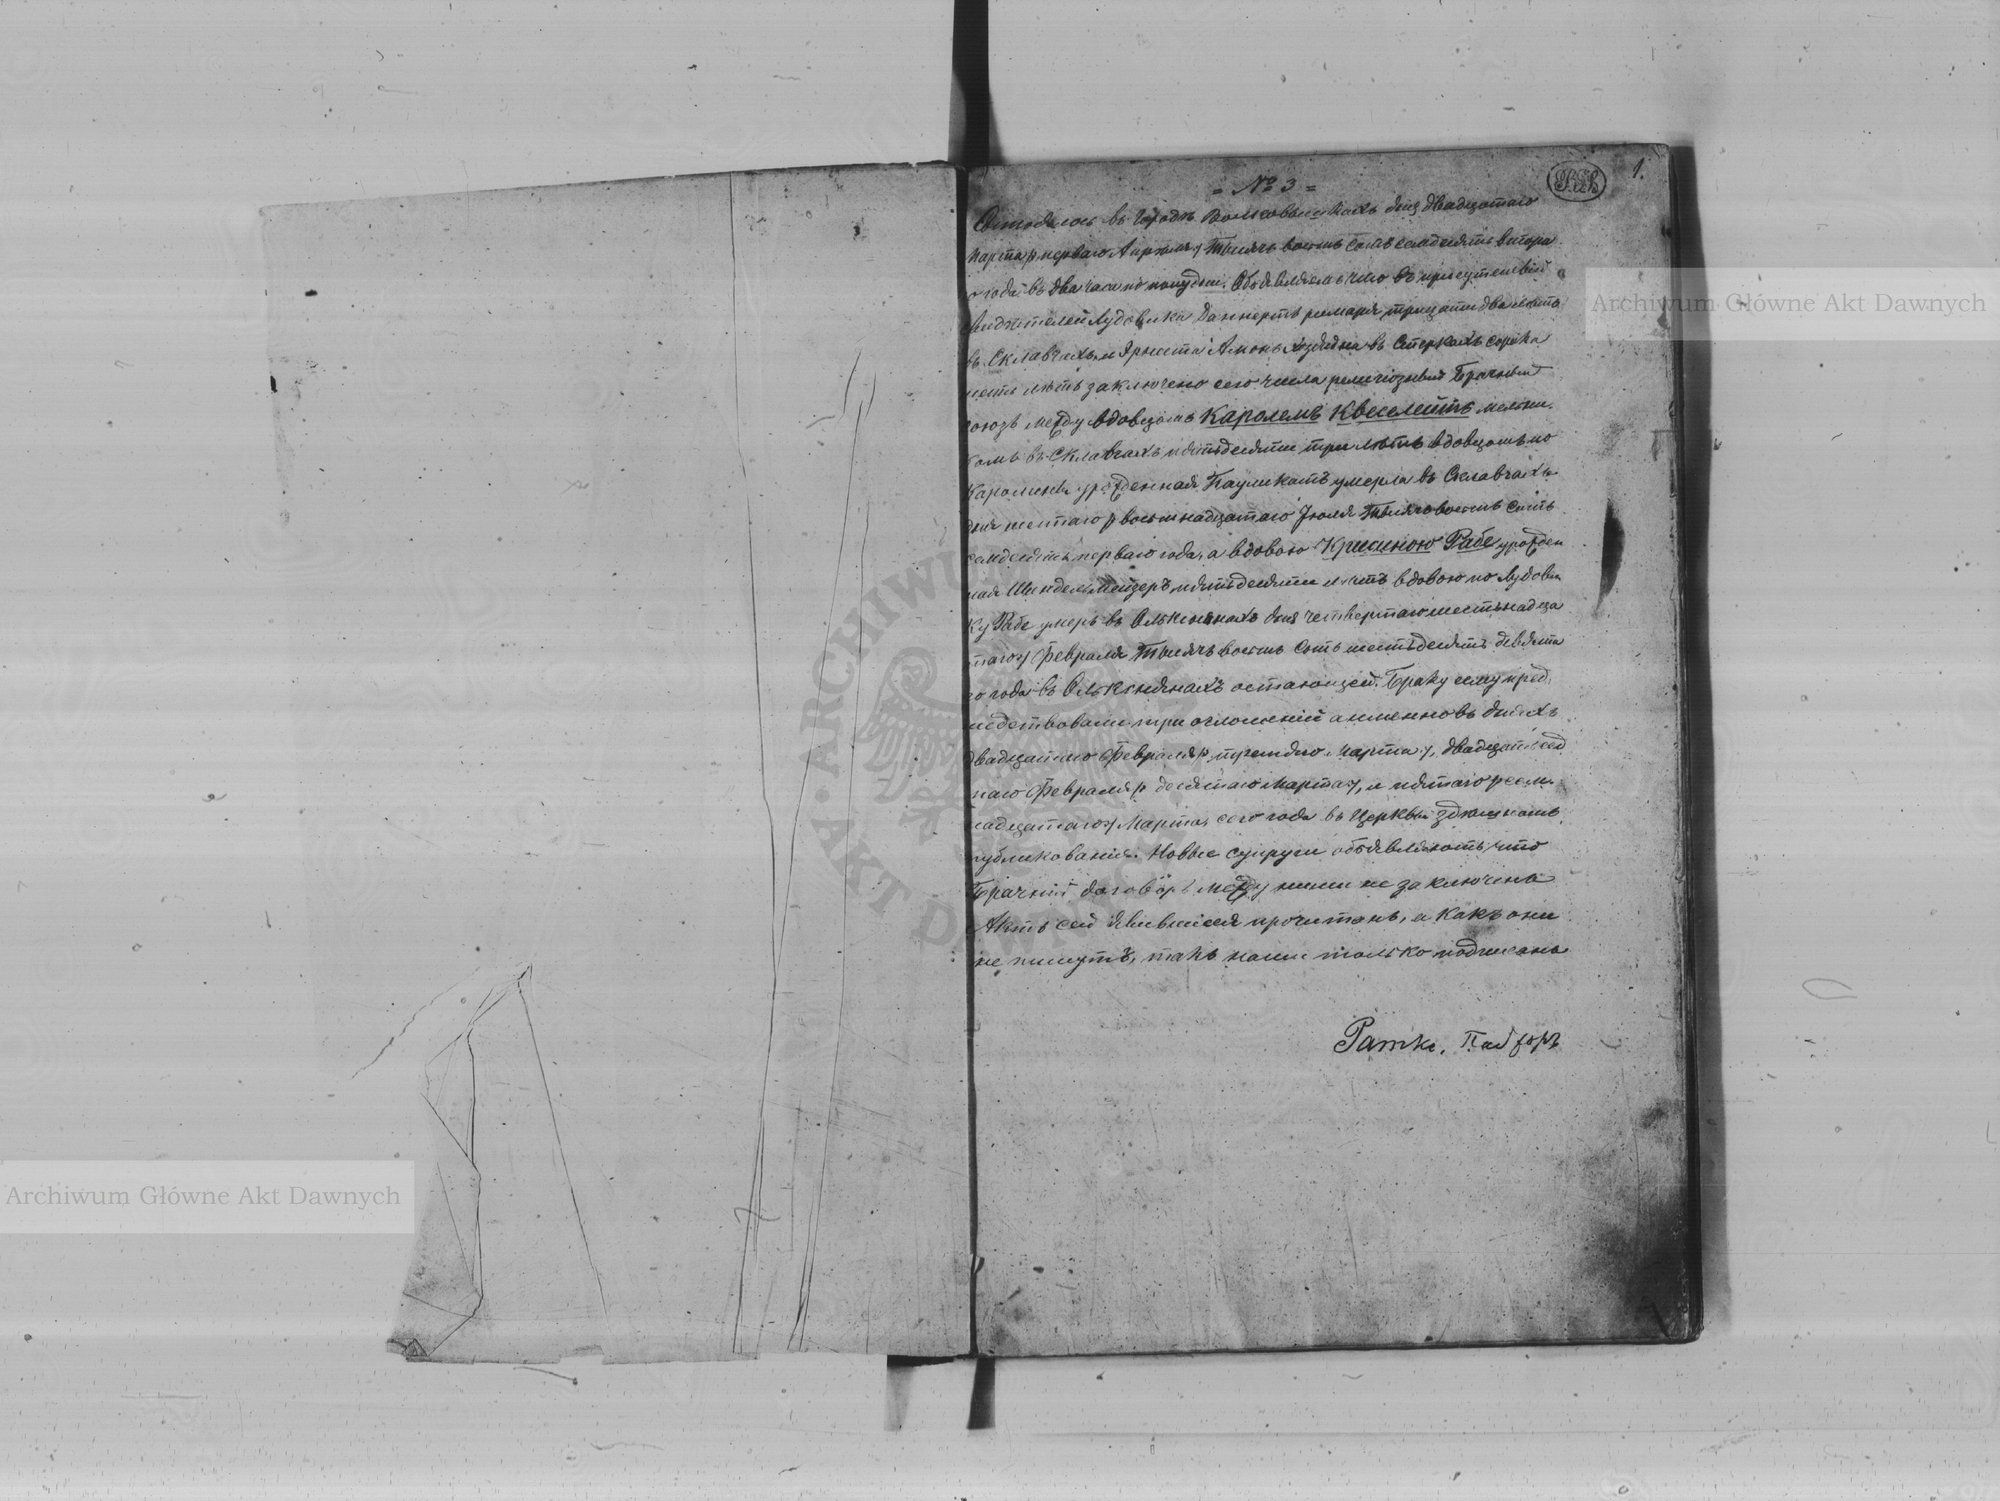 1.
= № 3 =
Состоялось въ городѣ Волковышкахъ дня двадцатаго
Марта / перваго Апрѣля / Тысячъ восемь сотъ семдесятъ втора
го года въ два часа по полудни. Объявляемъ что въ присутствій
свидѣтелей Лудовика Даннертъ римаря трицати два лѣтъ
въ Склавчахъ и Эрнста Амонъ хозяина въ Стеркахъ сорока
шесть лѣтъ заключено сего числа религіозный Брачный
союзъ между вдовцомъ Каролемъ Квеселейтъ
въ Склавчахъ пятьдесяти три лѣтъ вдовцомъ по
Каролинѣ урожденная Паулкатъ умерла въ Склавчахъ
дня шестаго / восьмнадцатаго Іюля Тысячъ восемь сотъ
семдесятъ перваго года, а вдовою Крисиною Рабе урожден
ная пятьдесяти лѣтъ вдовою по Лудови
ку Рабе умеръ въ Олькснянахъ дня четвертаго шестьнадца
таго / Февраля Тысячъ восемь сотъ шестьдесятъ девята
го года въ Олькснянахъ остающей. Браку сему пред
шедствовали три оглошеній а именно въ дняхъ
двадцатаго Февраля / третяго Марта /, двадцать сед
маго Февраля / десятаго Марта /, и пятаго / семь
надцатаго / Марта, сего года въ Церквѣ здешномъ
публикованія. Новые супруги объявляютъ что
Брачный договоръ между ними не заключенъ
Актъ сей явившися прочитанъ, и какъ они
не пишутъ, такъ нами только подписанъ
Ратке, Пасторъ
Archiwum Główne Akt Dawnych
Archiwum Główne Akt Dawnych
ARCHIWUM
AKT DAWNYCH